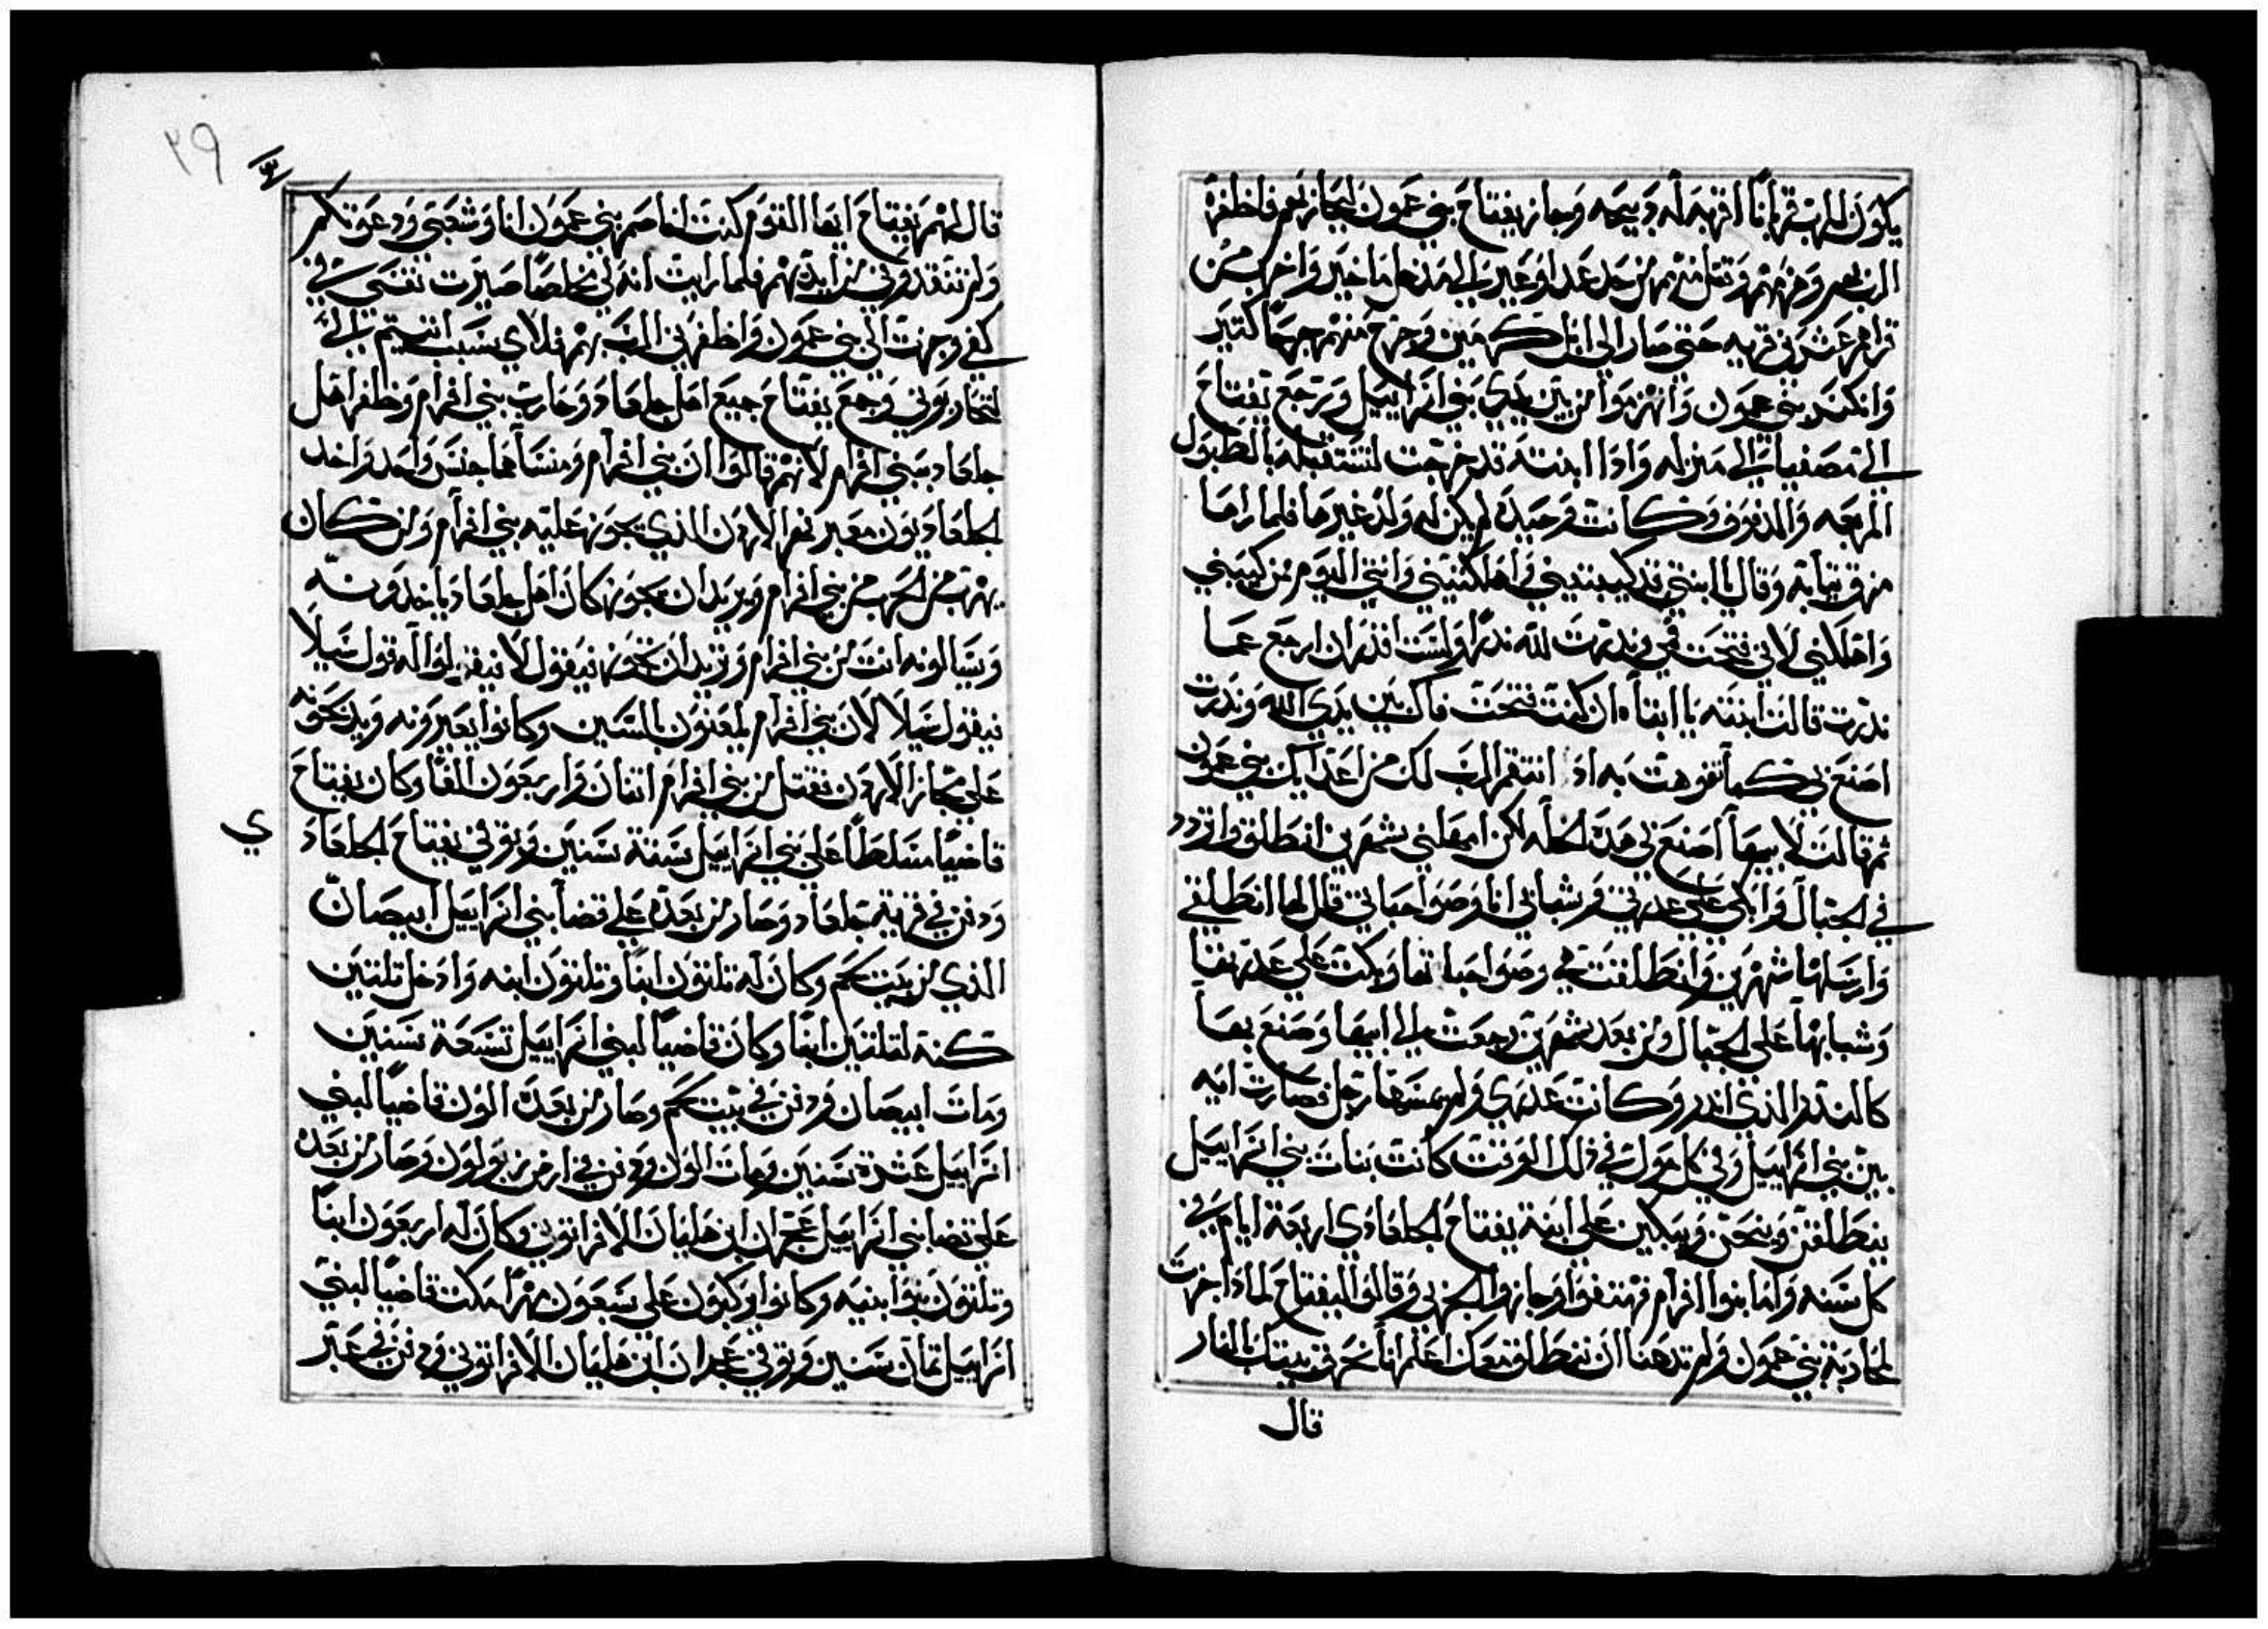 يكون للرب قربانًا اقربه له دبيحه وجاز يفتاح بني عمون ليحاربهم فاظفره
الرب بهم وهزمهم وقتل منهم من حد عداوعير الى مدخل ماخير واخرب من
قراهم عشرين قريه حتى صار الي ابل كرمين وجرح منهم جرحا كتير
وانكسر بني عمون وانهزموا من بين يدي بني اسراييل ورجع يفتاح
الي مصفيا الي منزله وادا ابنته قد خرجت لتستقبله بالطبول
المربعه والدفوف وكانت وحيده لم يكن له ولد غيرها فلما راها
مزق تيابه وقال يا ابنتي قد كبتديني واهلكتيني وانتي اليوم من كبتني
واهلكني لاني فتحت في وندرت لله ندرًا ولست اقدر ان ارجع عما
ندرت قالت ابنته يا ابتاه ان كنت فتحت فاك بين يدي الله وندرت
اصنع بي كما تفوهت به اد انتقم الرب لك من اعدايك بني عمون
ثم قالت لابيها اصنع بي هده الخله لكن امهلني شهرين انطلق واتردد
في الجبال وابكي على عدرتي وشبابي انا وصواحباتي قال لها انطلقي
وارسلها شهرين وانطلقت هي وصواحباتها وبكت على عدرتها
وشبابها على الجبال ومن بعد شهرين رجعت الي ابيها وصنع بها
كالندر الدي اندر وكانت عدري ولم يمسها رجل فصارت ايه
بين بني اسراييل وفي كل حول في دلك الوقت كانت بنات بني اسراييل
ينطلقن وينحن ويبكين على ابنة يفتاح الجلعادي اربعة ايام في
كل سنه واما بنوا افرام فهتفوا وجازوا الجزبي وقالوا ليفتاح لمادا جزت
لمحاربة بني عمون ولم تدعنا ان ننطلق معك اعلم انا نحرق بيتك بالنار
قال
٢٩
قال لهم يفتاح ايها القوم كنت اخاصم بني عمون انا وشعبي ودعوتكم
ولم تنقدوني من ايديهم فلما رايت انه ليس مخلصًا صيرت نفسي في
كفي وجزت الي بني عمون واظفرني الرب بهم فلاي سبب اتيتم الي
لتحاربوني وجمع يفتاح جميع اهل جلعاد وحارب بني افرام وظفر اهل
جلعاد ببني افرام لانهم قالوا ان بني افرام ومنسا هما جنس واحد واخد
الجلعاديون معبر نهر الاردن الدي يجوز عليه بني افرام ومن كان
يهرب من الحرب من بني افرام ويريد ان يجوز كان اهل جلعاد ياخدونه
ويسالونه انت من بني افرام وتريد ان تجوز فيقول لا فيقولوا له قول شبلا
فيقول سبلا لان بني افرام يلعنون بالسين وكانوا يعبرونه ويدبحونه
على مجاز الاردن فقتل من بني افرام اتنان واربعون الفًا وكان يفتاح
قاضيًا مسلطًا على بني اسراييل ستة سنين وتوفي يفتاح الجلعاد
ي
ودفن في قرية جلعاد وصار من بعده على قضا بني اسراييل ابيصان
الدي من بيت لحم وكان له تلتون ابنًا وتلتون ابنه وادخل تلتين
كنة لتلتين ابنًا وكان قاضيًا لبني اسراييل تسعة سنين
ومات ابيصان ودفن في بيت لحم وصار من بعده الون قاضيًا لبني
اسراييل عشرة سنين ومات الون ودفن في ارض زبولون وصار من بعده
على قضا بني اسراييل عجران ابن هليان الافراتوني وكان له اربعون ابنًا
وتلتون بنوا بنيه وكانوا يركبون على سبعون مهرًا مكت قاضيًا لبني
اسراييل تمان سنين وتوفي عجران ابن هليان الافراتوني ودفن في عبر